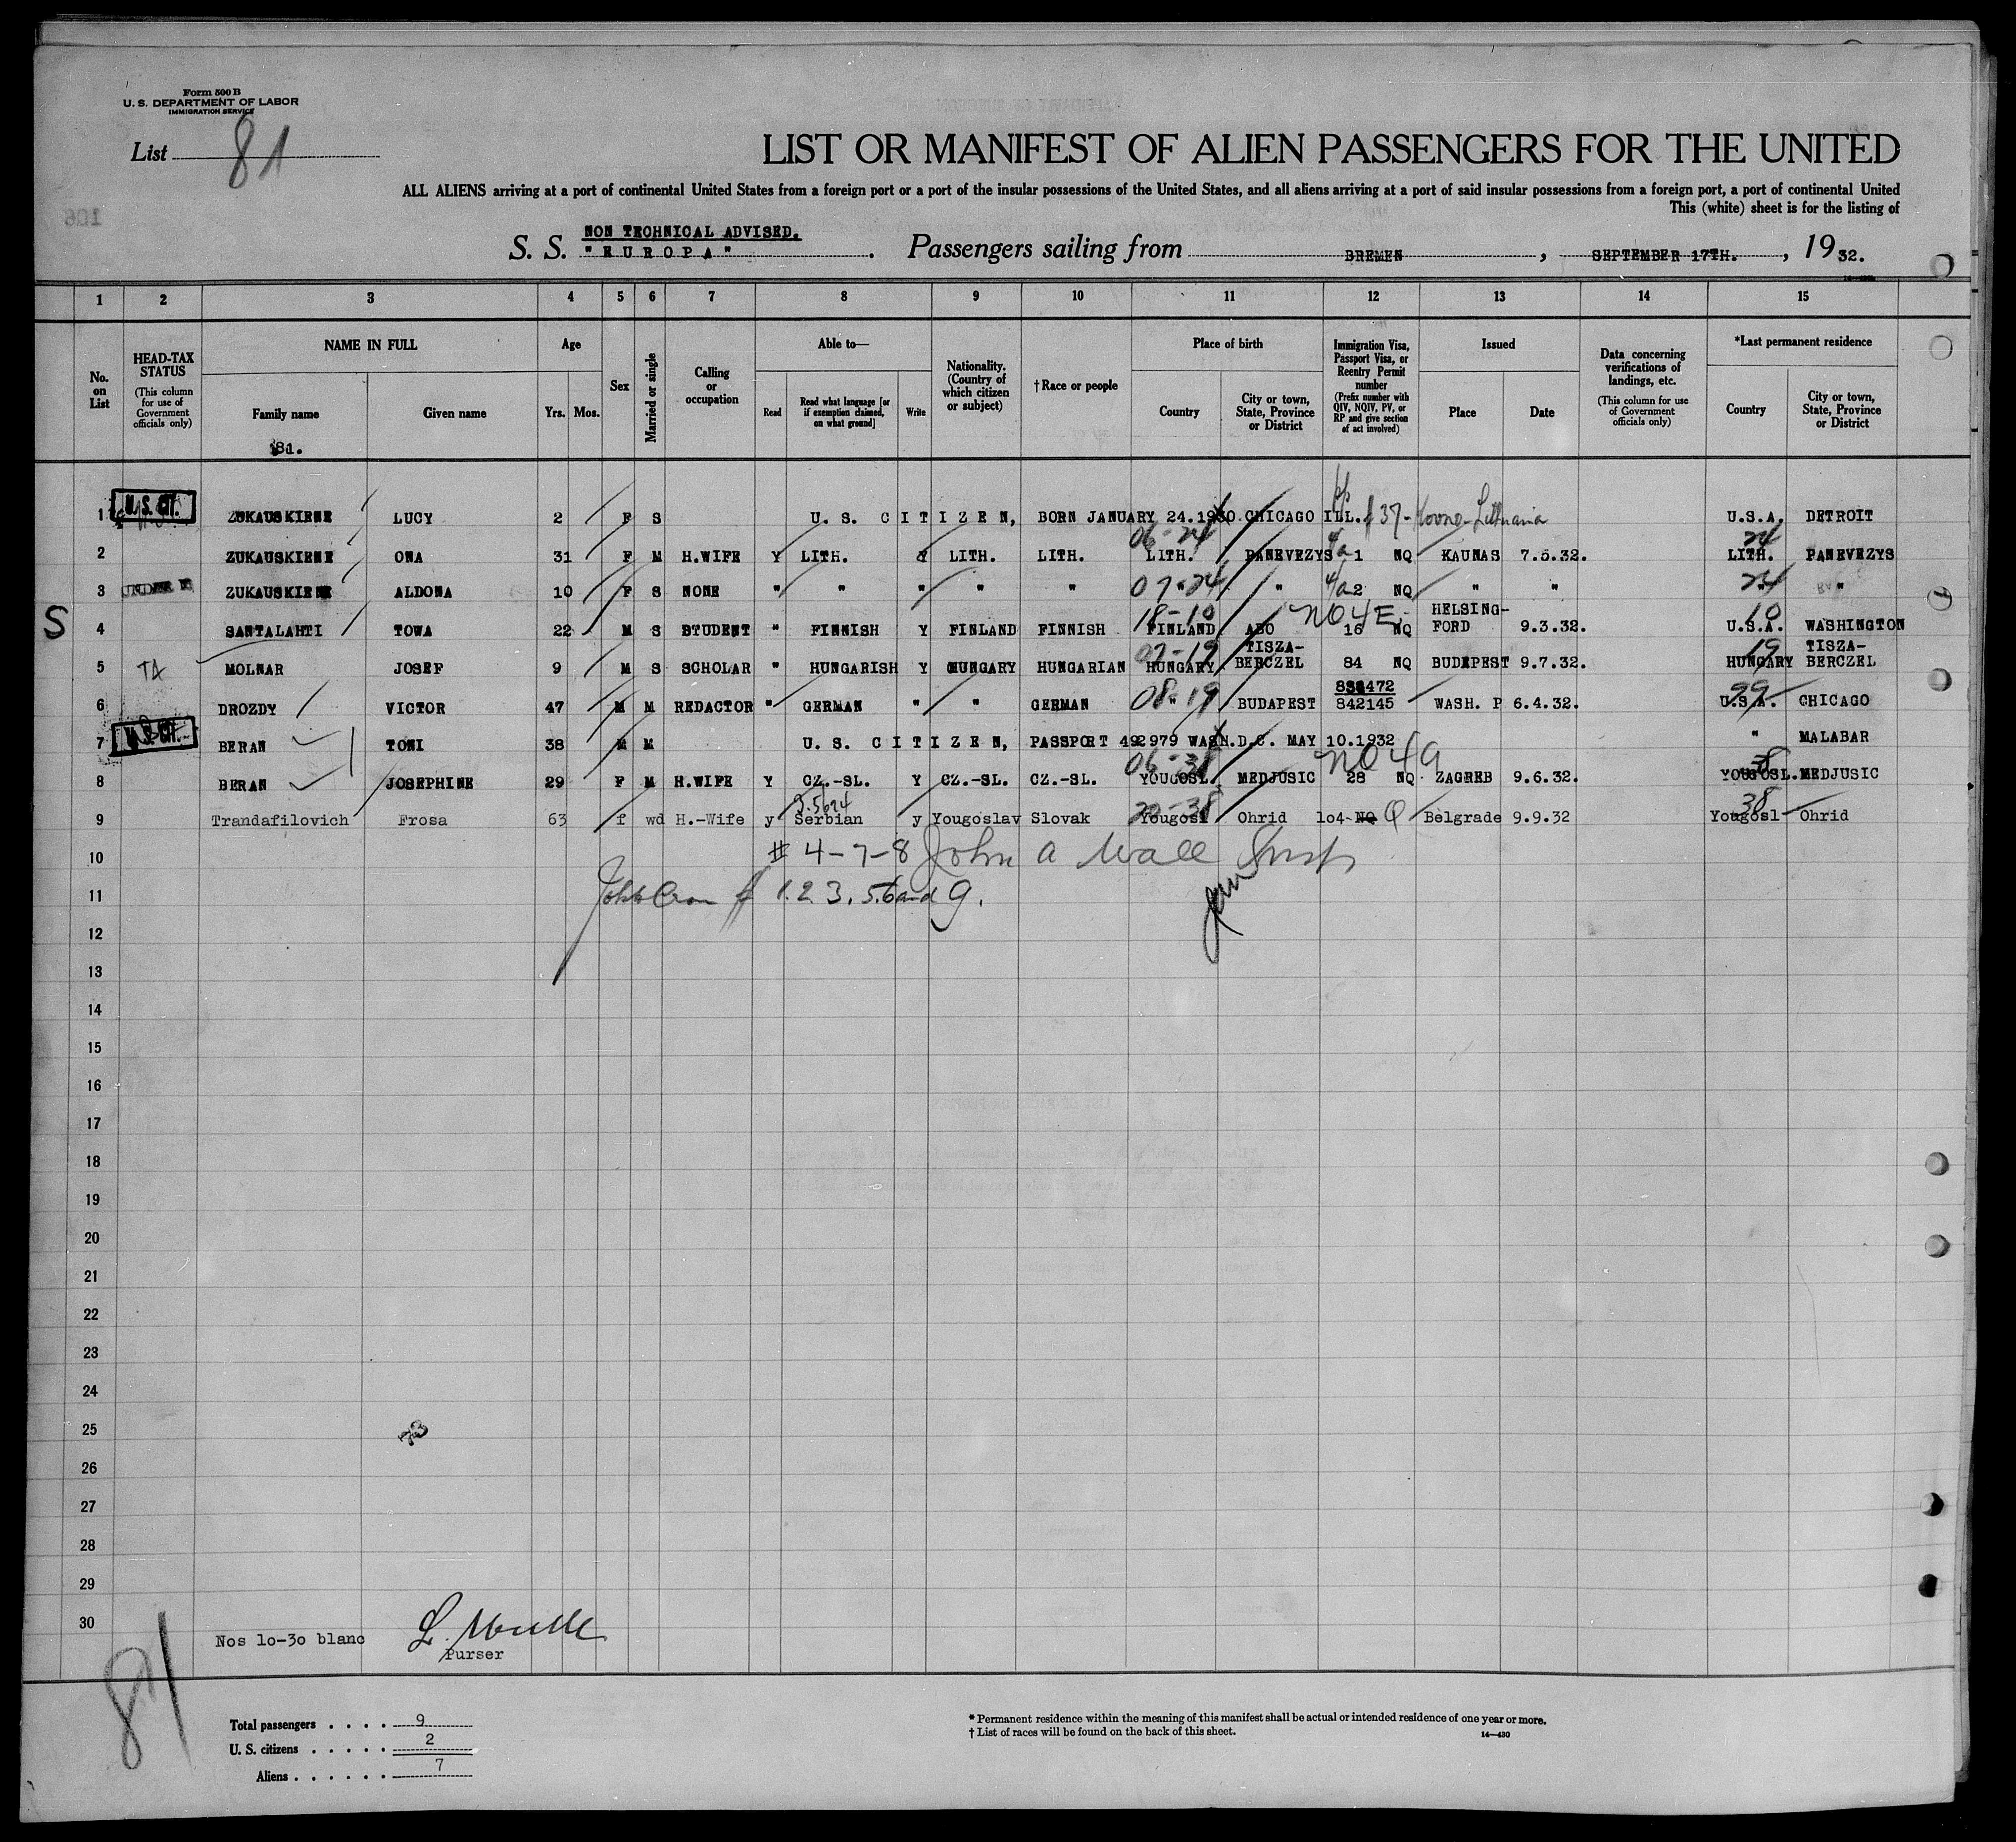 Form 500 B
U. S. DEPARTMENT OF LABOR
IMMIGRATION SERVICE
List 81
LIST OR MANIFEST OF ALIEN PASSENGERS FOR THE UNITED
ALL ALIENS arriving at a port of continental United States from a foreign port or a port of the insular possessions of the United States, and all aliens arriving at a port of said insular possessions from a foreign port, a port of continental United
This (white) sheet is for the listing of
106
NON TECHNICAL ADVISED.
S. S. "EUROPA". Passengers sailing from BREMEN, SEPTEMBER 17TH., 1932.
1 2 3 4 5 6 7 8 9 10 11 12 13 14 15
No. on List
HEAD-TAX STATUS (This column for use of Government officials only)
NAME IN FULL
Family name Given name
Age
Yrs. Mos.
Sex
Married or single
Calling or occupation
Able to—
Read Read what language [or if exemption claimed, on what ground] Write
Nationality. (Country of which citizen or subject)
†Race or people
Place of birth
Country City or town, State, Province or District
Immigration Visa, Passport Visa, or Reentry Permit number (Prefix number with QIV, NQIV, PV, or RP and give section of act involved)
Issued
Place Date
Data concerning verifications of landings, etc. (This column for use of Government officials only)
*Last permanent residence
Country City or town, State, Province or District
81.
1 U.S. CIT. ZUKAUSKIENE LUCY 2 F S U. S. CITIZEN, BORN JANUARY 24.1930.CHICAGO ILL. 37-Kovno-Lithuania U.S.A. DETROIT
06-24 24
2 ZUKAUSKIENE ONA 31 F M H.WIFE Y LITH. Y LITH. LITH. LITH. PANEVEZYS 4/a 1 NQ KAUNAS 7.5.32. LITH. PANEVEZYS
3 UNDER 16 ZUKAUSKIENE ALDONA 10 F S NONE " " " " " 07-24 " " 4/a 2 NQ " " 24 " "
18-10 NO4E HELSING- 10
S 4 SANTALAHTI TOWA 22 M S STUDENT " FINNISH Y FINLAND FINNISH FINLAND ABO 16 NQ FORD 9.3.32. U.S.A. WASHINGTON
07-19 TISZA- 19 TISZA-
5 TA MOLNAR JOSEF 9 M S SCHOLAR " HUNGARISH Y HUNGARY HUNGARIAN HUNGARY BERCZEL 84 NQ BUDEPEST 9.7.32. HUNGARY BERCZEL
08-19 99
6 DROZDY VICTOR 47 M M REDACTOR " GERMAN " " GERMAN " BUDAPEST 842145 WASH. P 6.4.32. U.S.A. CHICAGO
7 U.S. CIT. BERAN TONI 38 M M U. S. CITIZEN, PASSPORT 492979 WASH.D.C. MAY 10.1932 " MALABAR
06-38 NO4a 38
8 BERAN JOSEPHINE 29 F M H.WIFE Y CZ.-SL. Y CZ.-SL. CZ.-SL. YOUGOSL. MEDJUSIC 28 NQ ZAGREB 9.6.32. YOUGOSL. MEDJUSIC
20-38 38
9 Trandafilovich Frosa 63 f wd H.-Wife y Serbian y Yougoslav Slovak Yougosl Ohrid 1o4-NQ Q Belgrade 9.9.32 Yougosl Ohrid
10 # 4-7-8 John A Wall Insp
11 1.2.3.5.6 and 9.
12
13
14
15
16
17
18
19
20
21
22
23
24
25
26
27
28
29
30
Nos 1o-3o blanc
Purser
81
Total passengers . . . . 9
U. S. citizens . . . . . 2
Aliens . . . . . . 7
* Permanent residence within the meaning of this manifest shall be actual or intended residence of one year or more.
† List of races will be found on the back of this sheet.
14—430